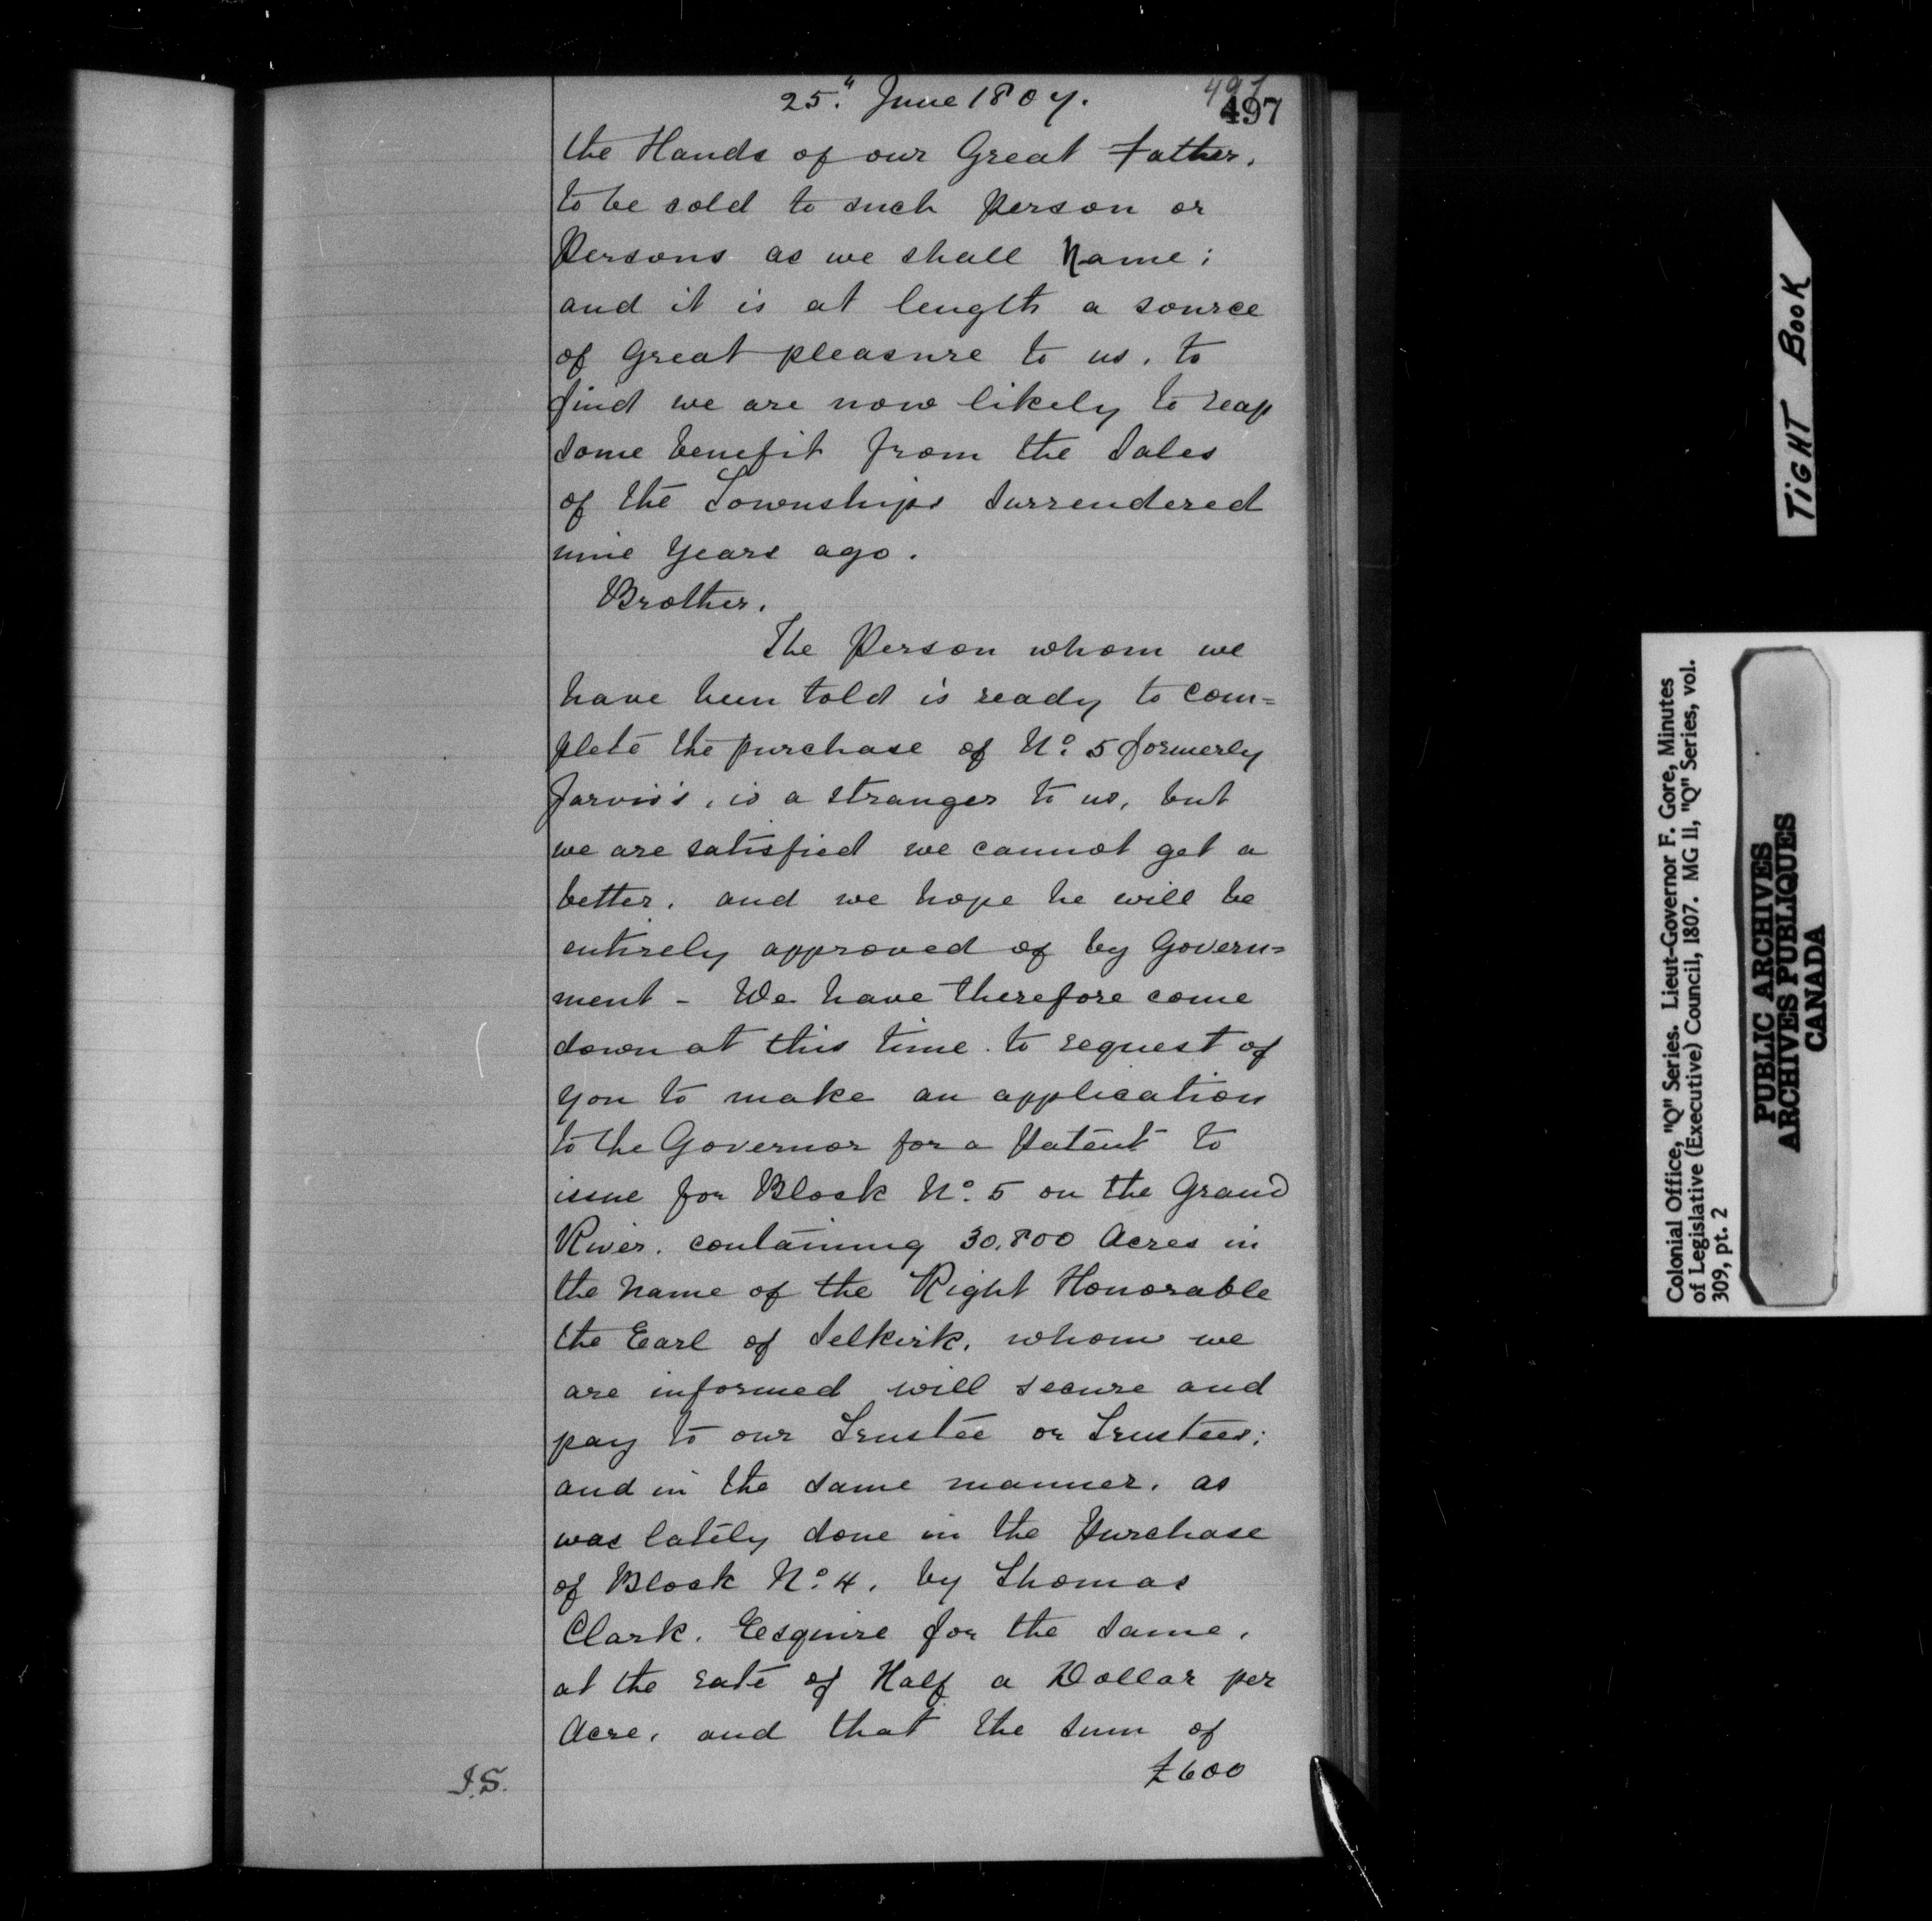 25." June 1807.
497
497
the Hands of our Great Father,
to be sold to such Person or
Persons as we shall Name;
and it is at length a source
of Great pleasure to us, to
find we are now likely to reap
some benefit from the Sales
of the Townships Surrendered
nine Years ago.
Brother,
The Person whom we
have been told is ready to com=
plete the purchase of No. 5 formerly
Jarvis's, is a stranger to us, but
we are satisfied we cannot get a
better, and we hope he will be
entirely approved of by Govern=
ment - We have therefore come
down at this time to request of
you to make an application
to the Governor for a Patent to
issue for Block No. 5 on the Grand
River, containing 30,800 Acres in
the Name of the Right Honorable
the Earl of Selkirk, whom we
are informed will secure and
pay to our Trustee or Trustees;
and in the same manner, as
was lately done in the Purchase
of Block No. 4, by Thomas
Clark, Esquire for the same,
at the rate of Half a Dollar per
Acre, and that the sum of
£600
J.S.
TIGHT BOOK
Colonial Office, "Q" Series. Lieut-Governor F. Gore, Minutes
of Legislative (Executive) Council, 1807. MG 11, "Q" Series, vol.
309, pt. 2
PUBLIC ARCHIVES
ARCHIVES PUBLIQUES
CANADA